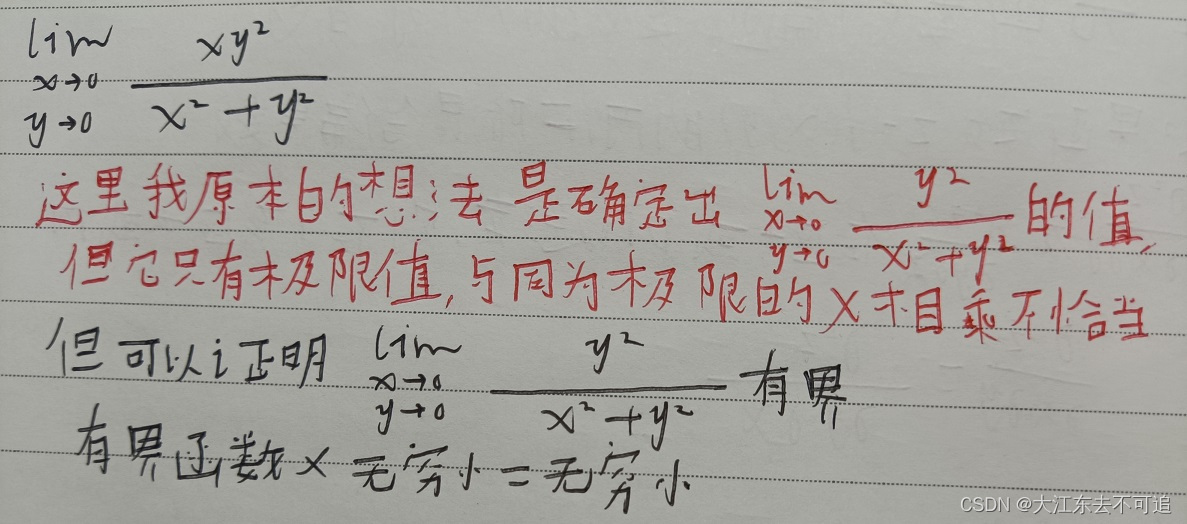 lim x→0 y→0 xy² / x² + y²
这里我原本的想法是确定出 lim x→0 y→0 y² / x² + y² 的值,
但它只有极限值,与同为极限的x相乘不恰当
但可以证明 lim x→0 y→0 y² / x² + y² 有界
有界函数×无穷小=无穷小
CSDN @大江东去不可追